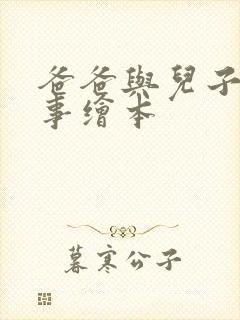 爸爸與兒子
事繪本
暮寒公子